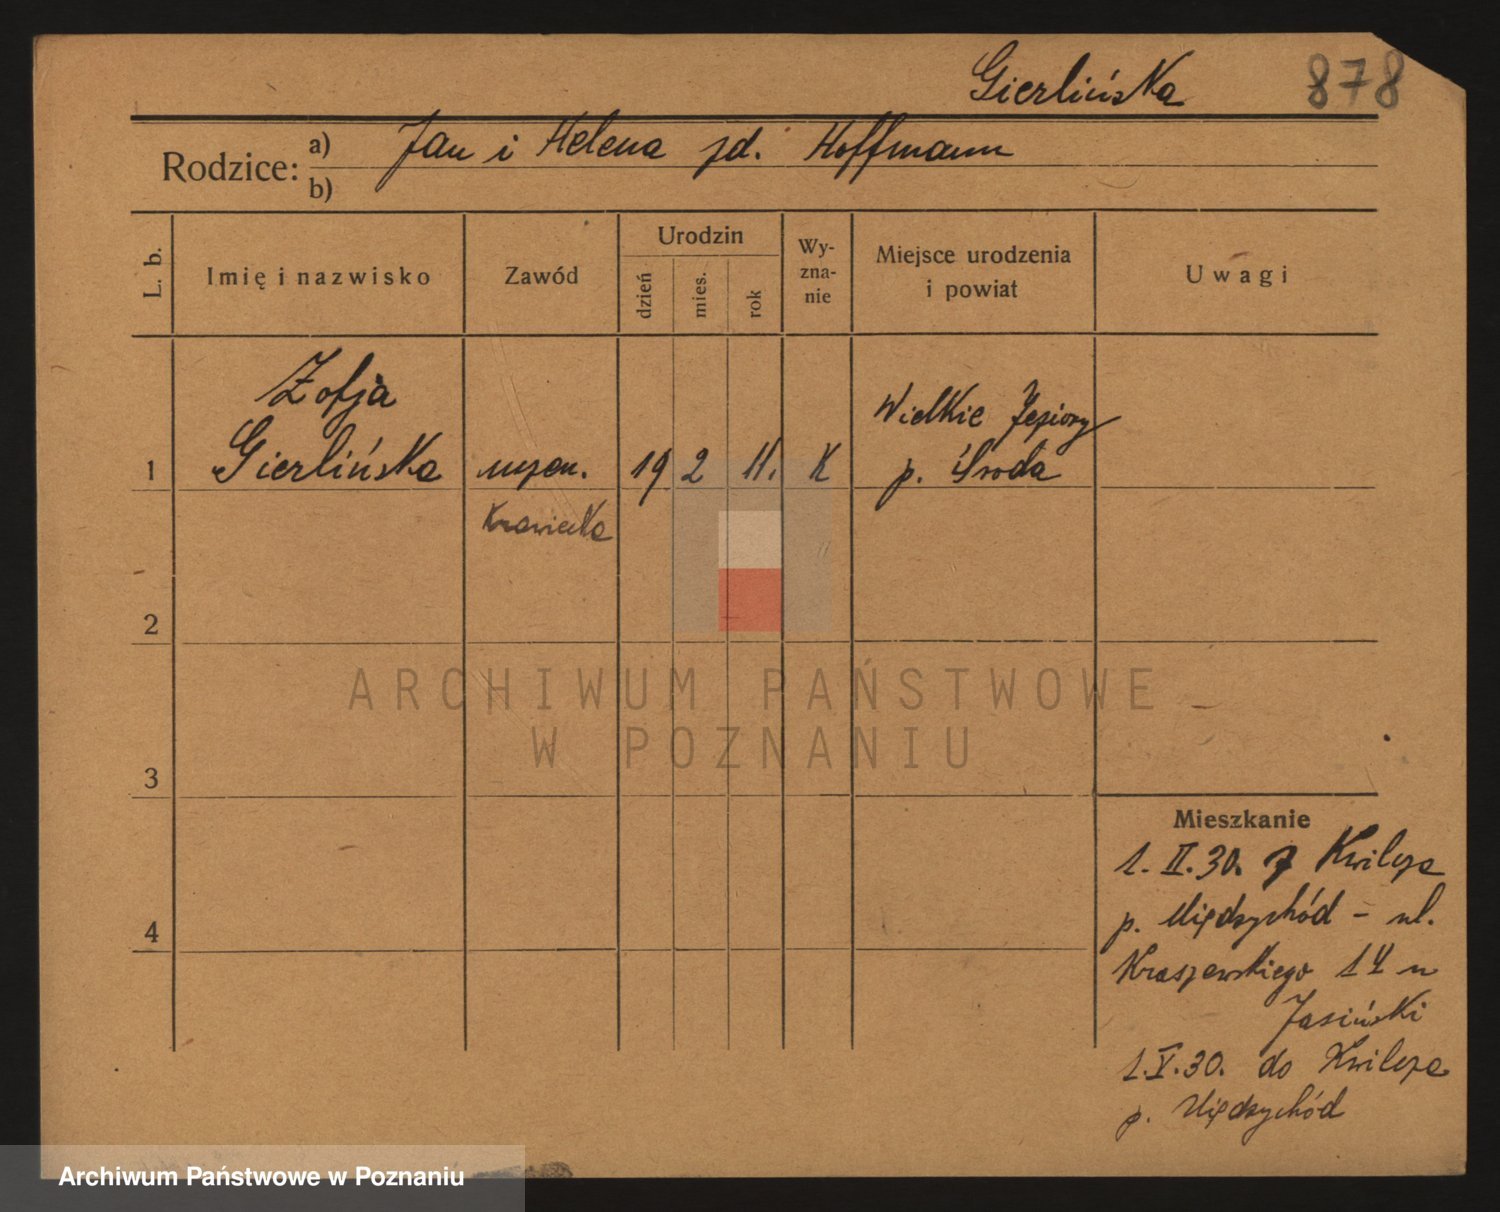 Gierlińska 878
Rodzice: a) Jan i Helena zd. Hoffmann
b)
L. b. Imię i nazwisko Zawód Urodzin dzień mies. rok Wy-zna-nie Miejsce urodzenia i powiat Uwagi
Zofja
Gierlińska
1 uczen. 19 2 11. K
Krawiecka
Wielkie Jeziory
p. Środa
2
3
4
ARCHIWUM PAŃSTWOWE
W POZNANIU
Mieszkanie
1. II. 30. z Kwilcza
p. Międzychód - ul.
Kraszewskiego 14 u
Jasiński
1. V. 30. do Kwilcza
p. Międzychód
Archiwum Państwowe w Poznaniu